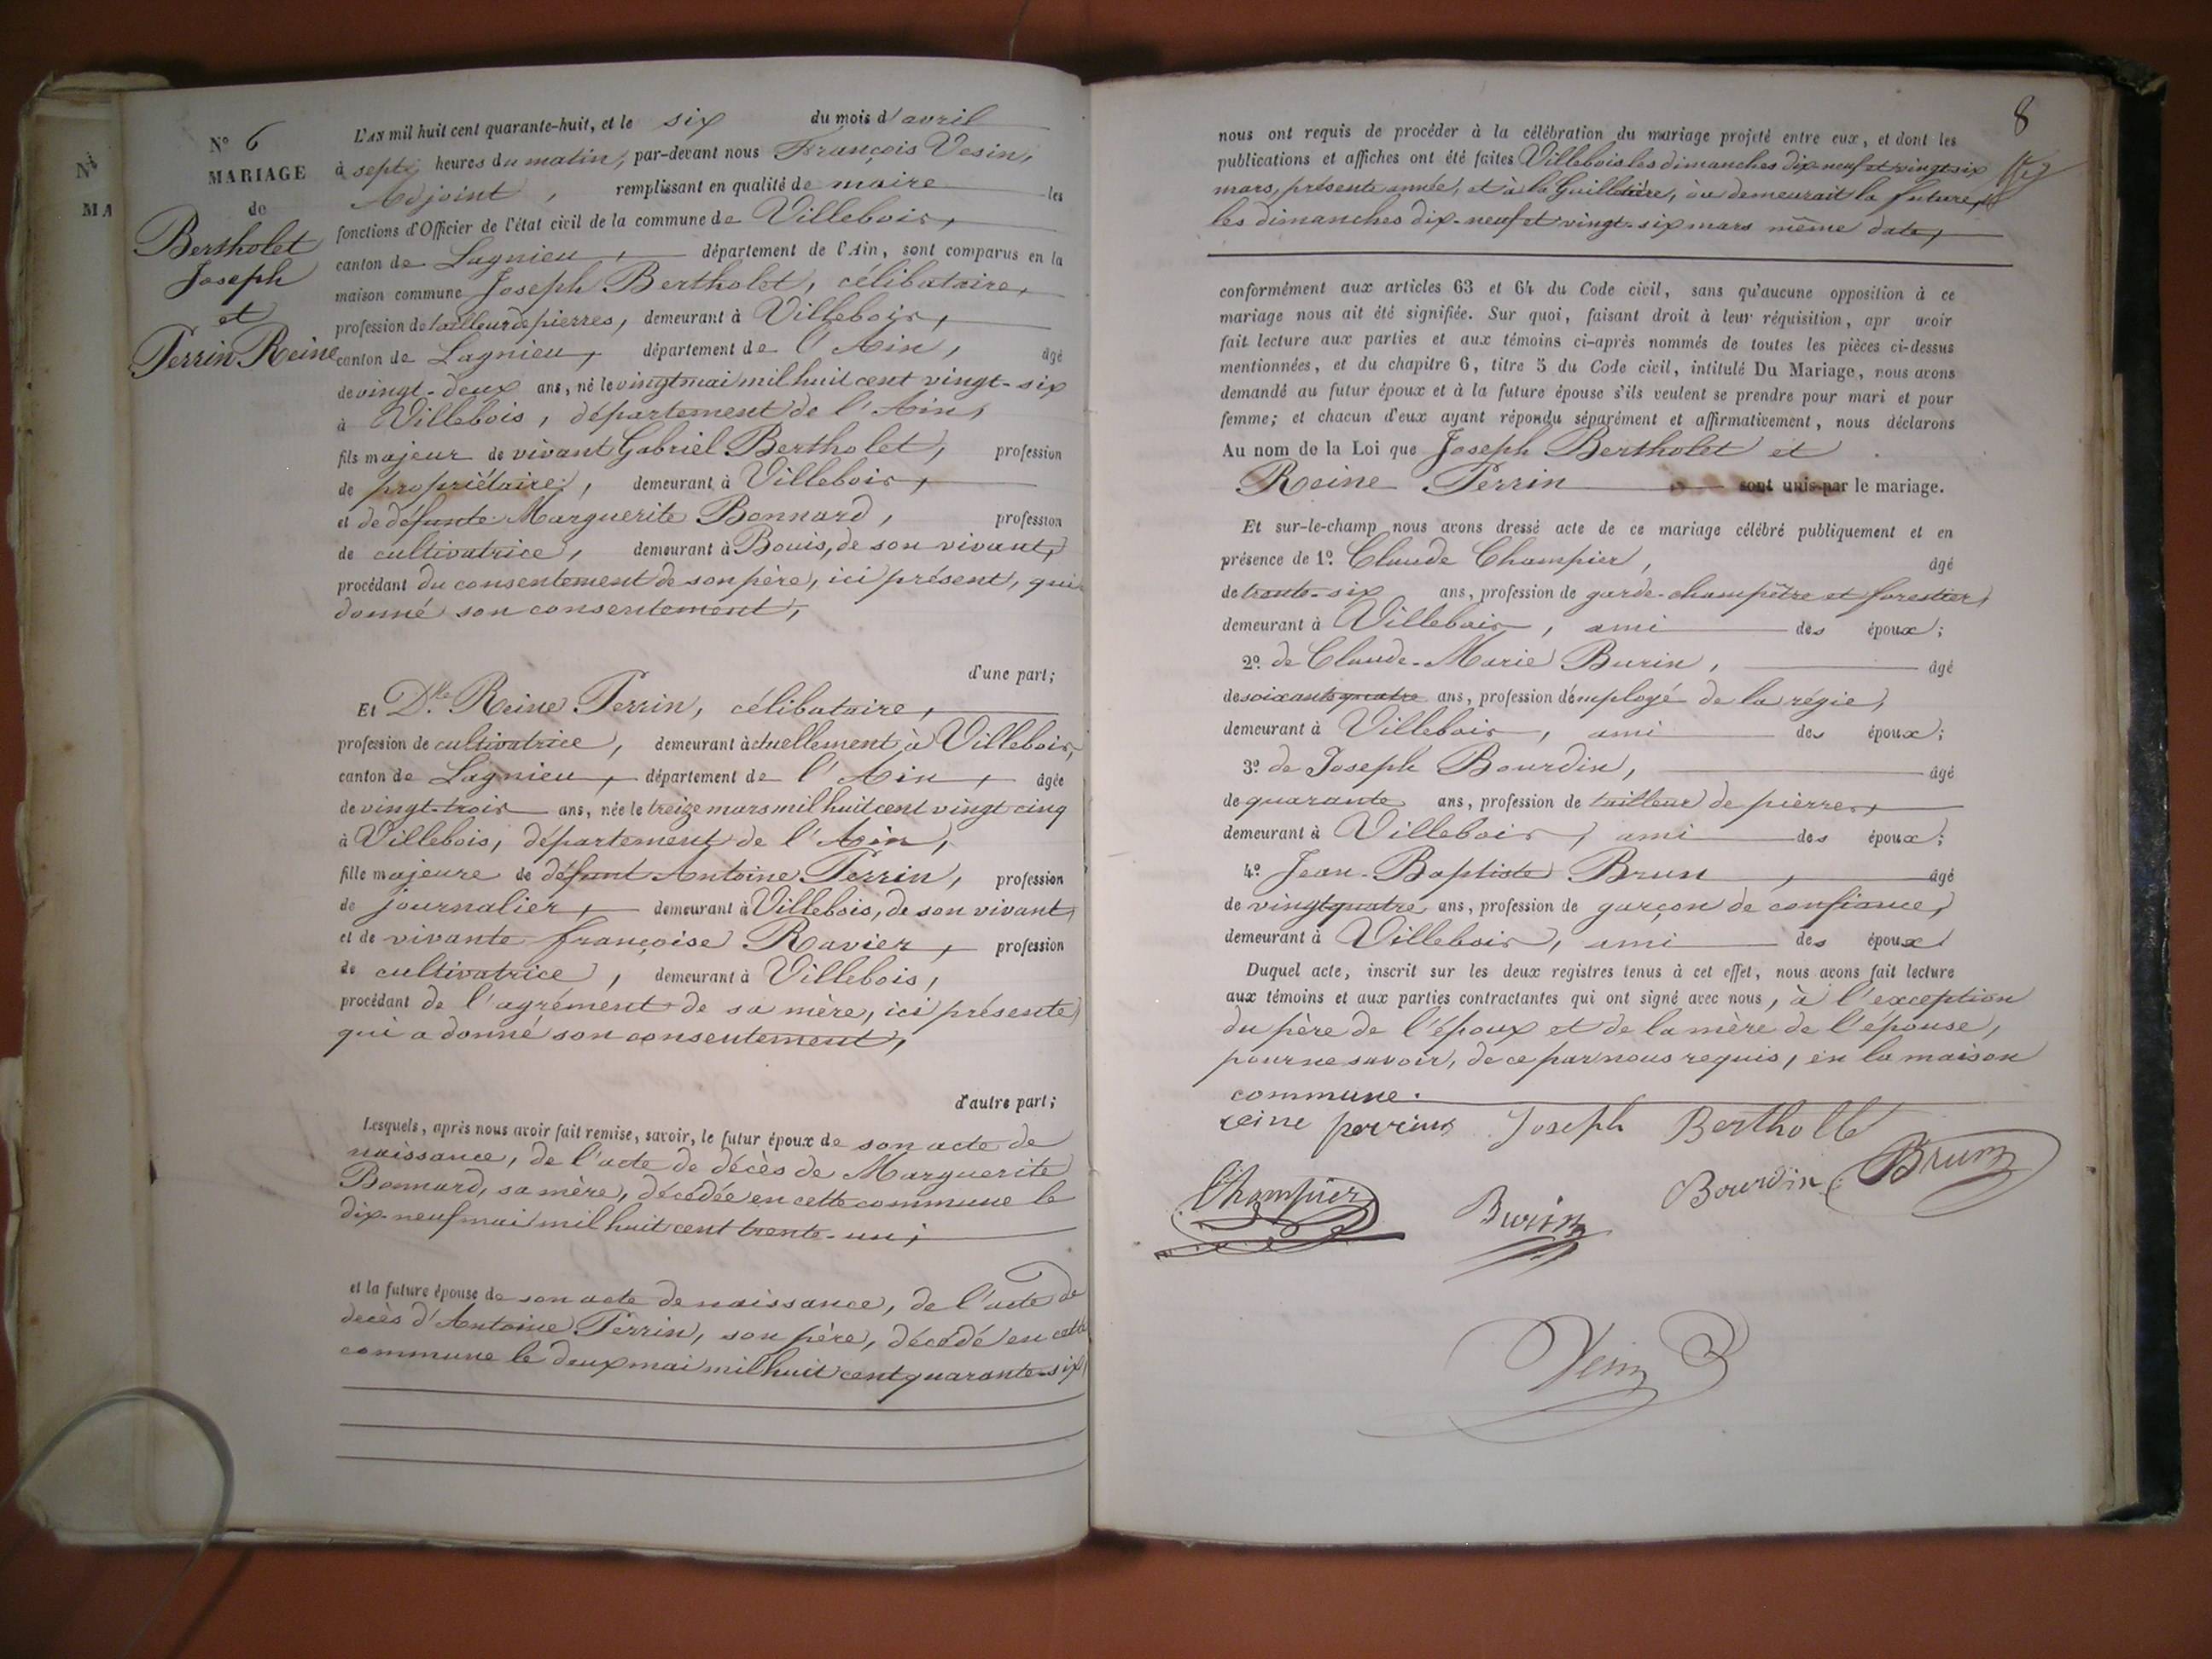 N°
MA
N° 6
MARIAGE
de
Bertholet
Joseph
et
Perrin Reine
L'AN mil huit cent quarante-huit, et le six du mois d'avril
à sept heures du matin, par-devant nous François Vesin,
Adjoint, remplissant en qualité de maire les
fonctions d'Officier de l'état civil de la commune de Villebois,
canton de Lagnieu, département de l'Ain, sont comparus en la
maison commune Joseph Bertholet, célibataire,
profession de tailleur de pierres, demeurant à Villebois,
canton de Lagnieu, département de l'Ain, âgé
de vingt-deux ans, né le vingt mai mil huit cent vingt-six
à Villebois, département de l'Ain,
fils majeur de vivant Gabriel Bertholet, profession
de propriétaire, demeurant à Villebois,
et de défunte Marguerite Bonnard, profession
de cultivatrice, demeurant à Bouis, de son vivant,
procédant du consentement de son père, ici présent, qui
donné son consentement,
d'une part;
Et Dlle Reine Perrin, célibataire,
profession de cultivatrice, demeurant actuellement à Villebois,
canton de Lagnieu, département de l'Ain, âgée
de vingt-trois ans, née le treize mars mil huit cent vingt cinq
à Villebois, département de l'Ain,
fille majeure de défunt Antoine Perrin, profession
de journalier, demeurant à Villebois, de son vivant,
et de vivante françoise Ravier, profession
de cultivatrice, demeurant à Villebois,
procédant de l'agrément de sa mère, ici présente,
qui a donné son consentement,
d'autre part;
Lesquels, après nous avoir fait remise, savoir, le futur époux de son acte de
naissance, de l'acte de décès de Marguerite
Bonnard, sa mère, décédée en cette commune le
dix-neuf mai mil huit cent trente-un;
et la future épouse de son acte de naissance, de l'acte de
decès d'Antoine Perrin, son père, décédé en cette
commune le deux mai mil huit cent quarante-six,
8
nous ont requis de procéder à la célébration du mariage projeté entre eux, et dont les
publications et affiches ont été faites Villebois les dimanches dix-neuf et vingt-six
mars, présente année, et à la Guillotière, où demeurait la future,
les dimanches dix-neuf et vingt-six mars même date,
conformément aux articles 63 et 64 du Code civil, sans qu'aucune opposition à ce
mariage nous ait été signifiée. Sur quoi, faisant droit à leur réquisition, apr avoir
fait lecture aux parties et aux témoins ci-après nommés de toutes les pièces ci-dessus
mentionnées, et du chapitre 6, titre 5 du Code civil, intitulé Du Mariage, nous avons
demandé au futur époux et à la future épouse s'ils veulent se prendre pour mari et pour
femme; et chacun d'eux ayant répondu séparément et affirmativement, nous déclarons
Au nom de la Loi que Joseph Bertholet et
Reine Perrin sont unis par le mariage.
Et sur-le-champ nous avons dressé acte de ce mariage célébré publiquement et en
présence de 1° Claude Champier, âgé
de trente-six ans, profession de garde-champêtre et forestier,
demeurant à Villebois, ami des époux;
2° de Claude-Marie Burin, âgé
de soixante quatre ans, profession d'employé de la régie,
demeurant à Villebois, ami des époux;
3° de Joseph Bourdin, âgé
de quarante ans, profession de tailleur de pierres,
demeurant à Villebois, ami des époux;
4° Jean-Baptiste Brun, âgé
de vingt quatre ans, profession de garçon de confiance,
demeurant à Villebois, ami des époux
Duquel acte, inscrit sur les deux registres tenus à cet effet, nous avons fait lecture
aux témoins et aux parties contractantes qui ont signé avec nous, à l'exception
du père de l'époux et de la mère de l'épouse,
pour ne savoir, de ce par nous requis, en la maison
commune.
reine perrins Joseph Bertholle
Champier Burin Bourdin Brun
Vesin